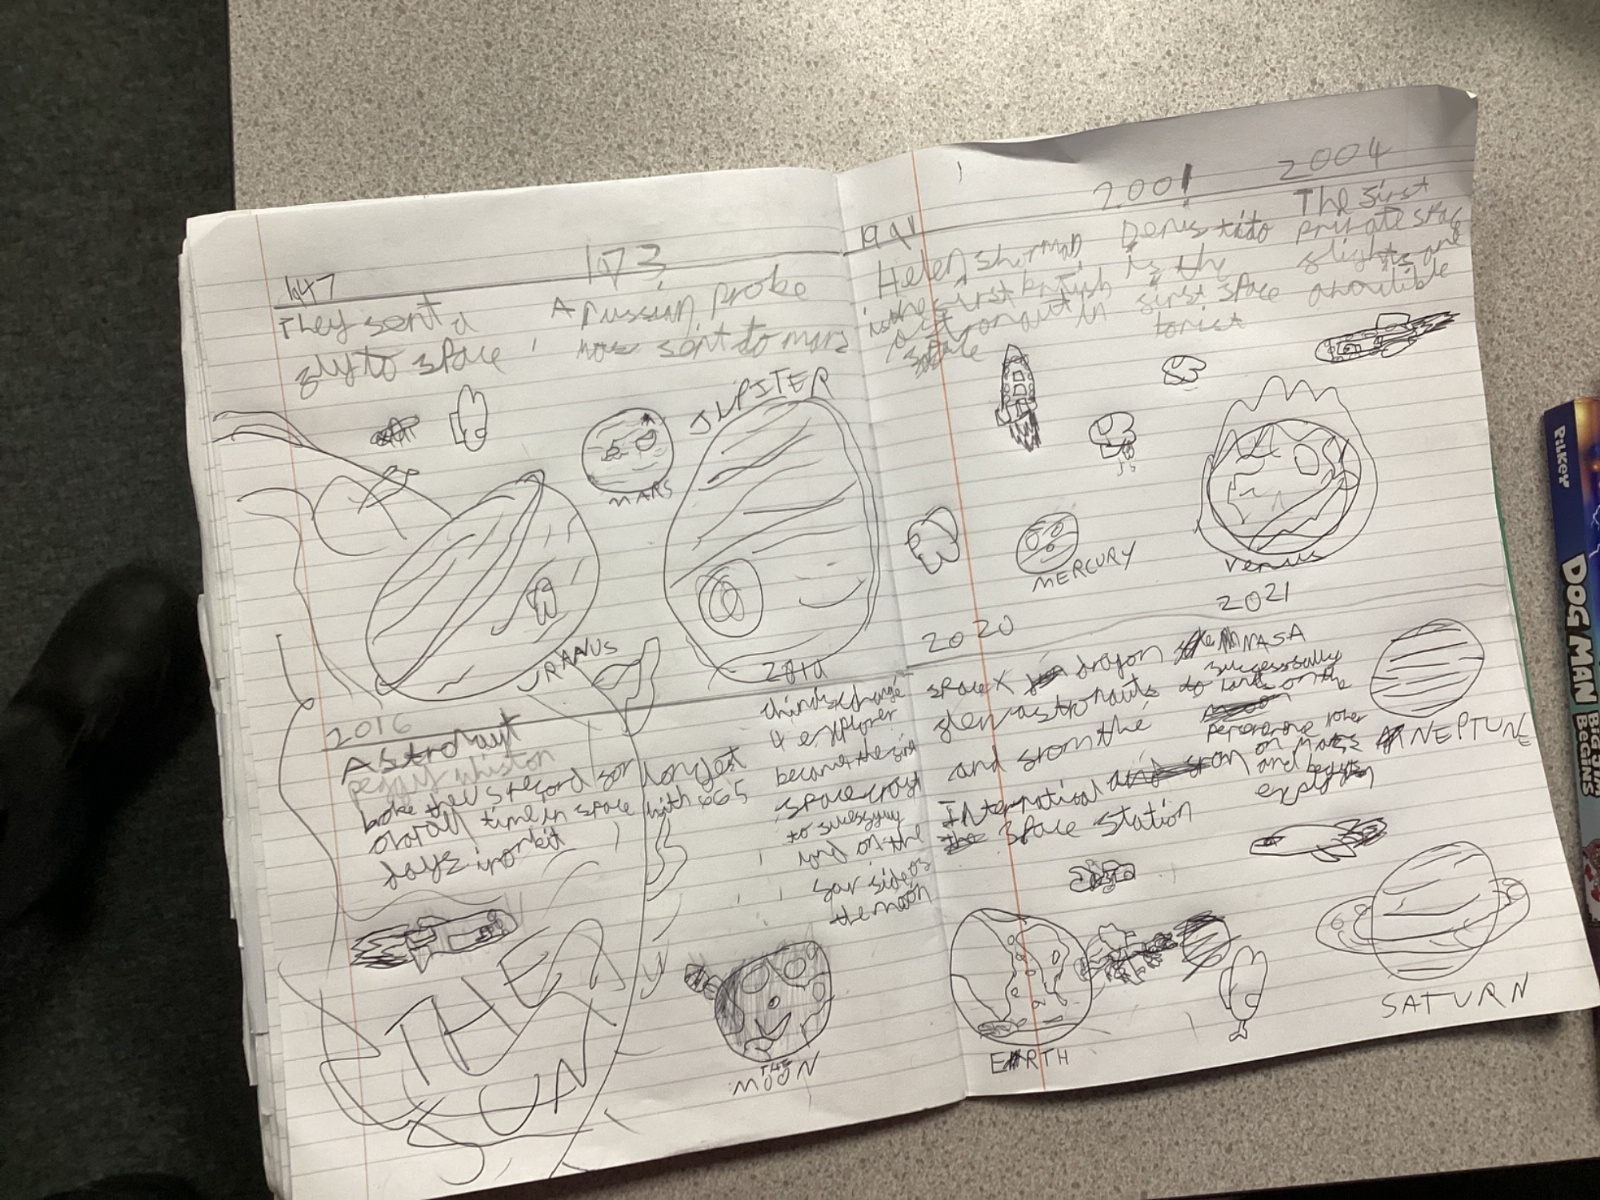 1947
They sent a
fly to space
173
A Russian probe
was sent to mars
1991
Helen Sharman
is the first british
astronaut in
space
2001
Denis tito
is the
first space
torist
2004
The first
private space
flights are
avalible
JUPITER
MARS
URANUS
MERCURY
venus
2016
Astronaut
peggy whiston
broke the US record for longest
overall time in space with 665
days in orbit
china's chang'e
4 explorer
became the first
spacecraft
to
land on the
far side of
the moon
2020
space X dragon
flew astronauts to
and from the
International
space station
2021
NASA
successfully
lands on the
rover
on Mars
and begins
NEPTUNE
THE
SUN
THE
MOON
EARTH
SATURN
PILKEY
DOG MAN
BIG JIM
BEGINS